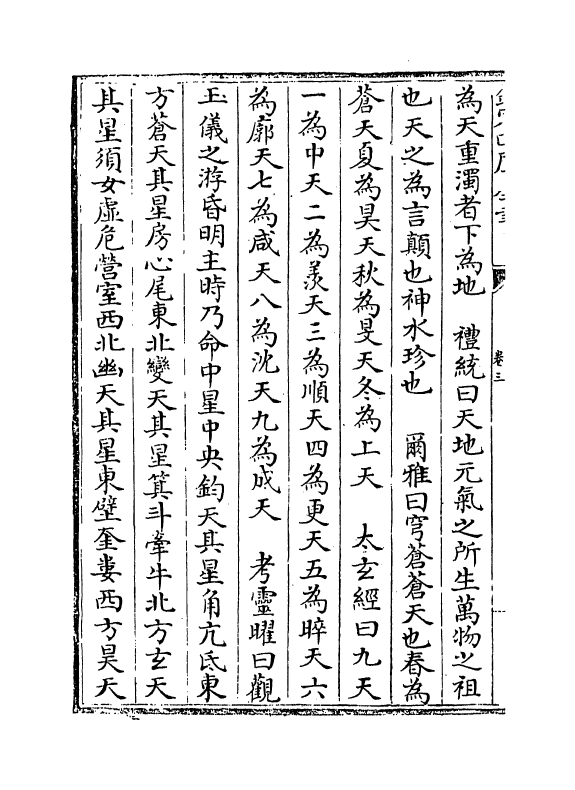 卷三
為天重濁者下為地　禮統曰天地元氣之所生萬物之祖
也天之為言顛也神水珍也　爾雅曰穹蒼蒼天也春為
蒼天夏為昊天秋為旻天冬為上天　太玄經曰九天
一為中天二為羨天三為順天四為更天五為睟天六
為廓天七為咸天八為沈天九為成天　考靈曜曰觀
玉儀之游昏明主時乃命中星中央鈞天其星角亢氐東
方蒼天其星房心尾東北變天其星箕斗牽牛北方玄天
其星須女虛危營室西北幽天其星東壁奎婁西方昊天